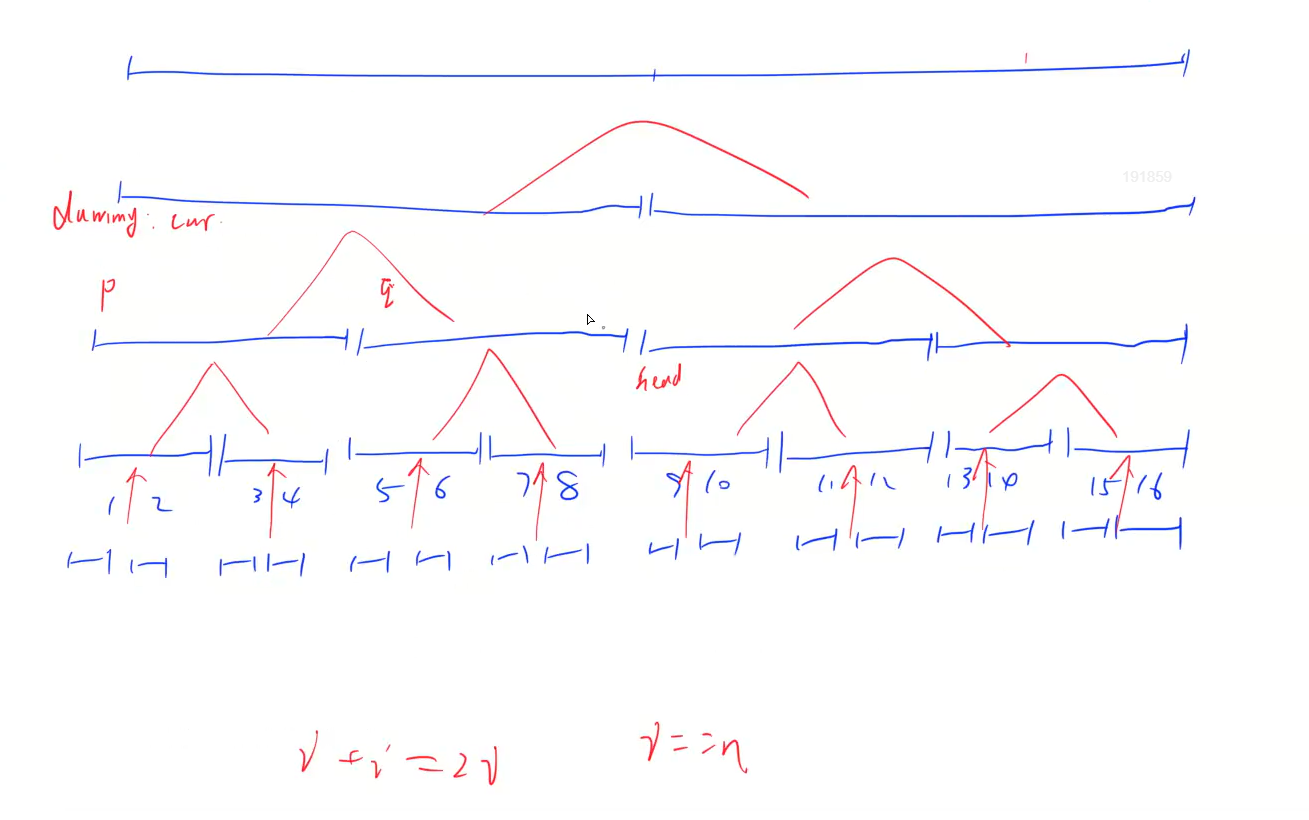 191859
dummy: cur.
p
q
head
1 2 3 4 5 6 7 8 9 10 11 12 13 14 15 16